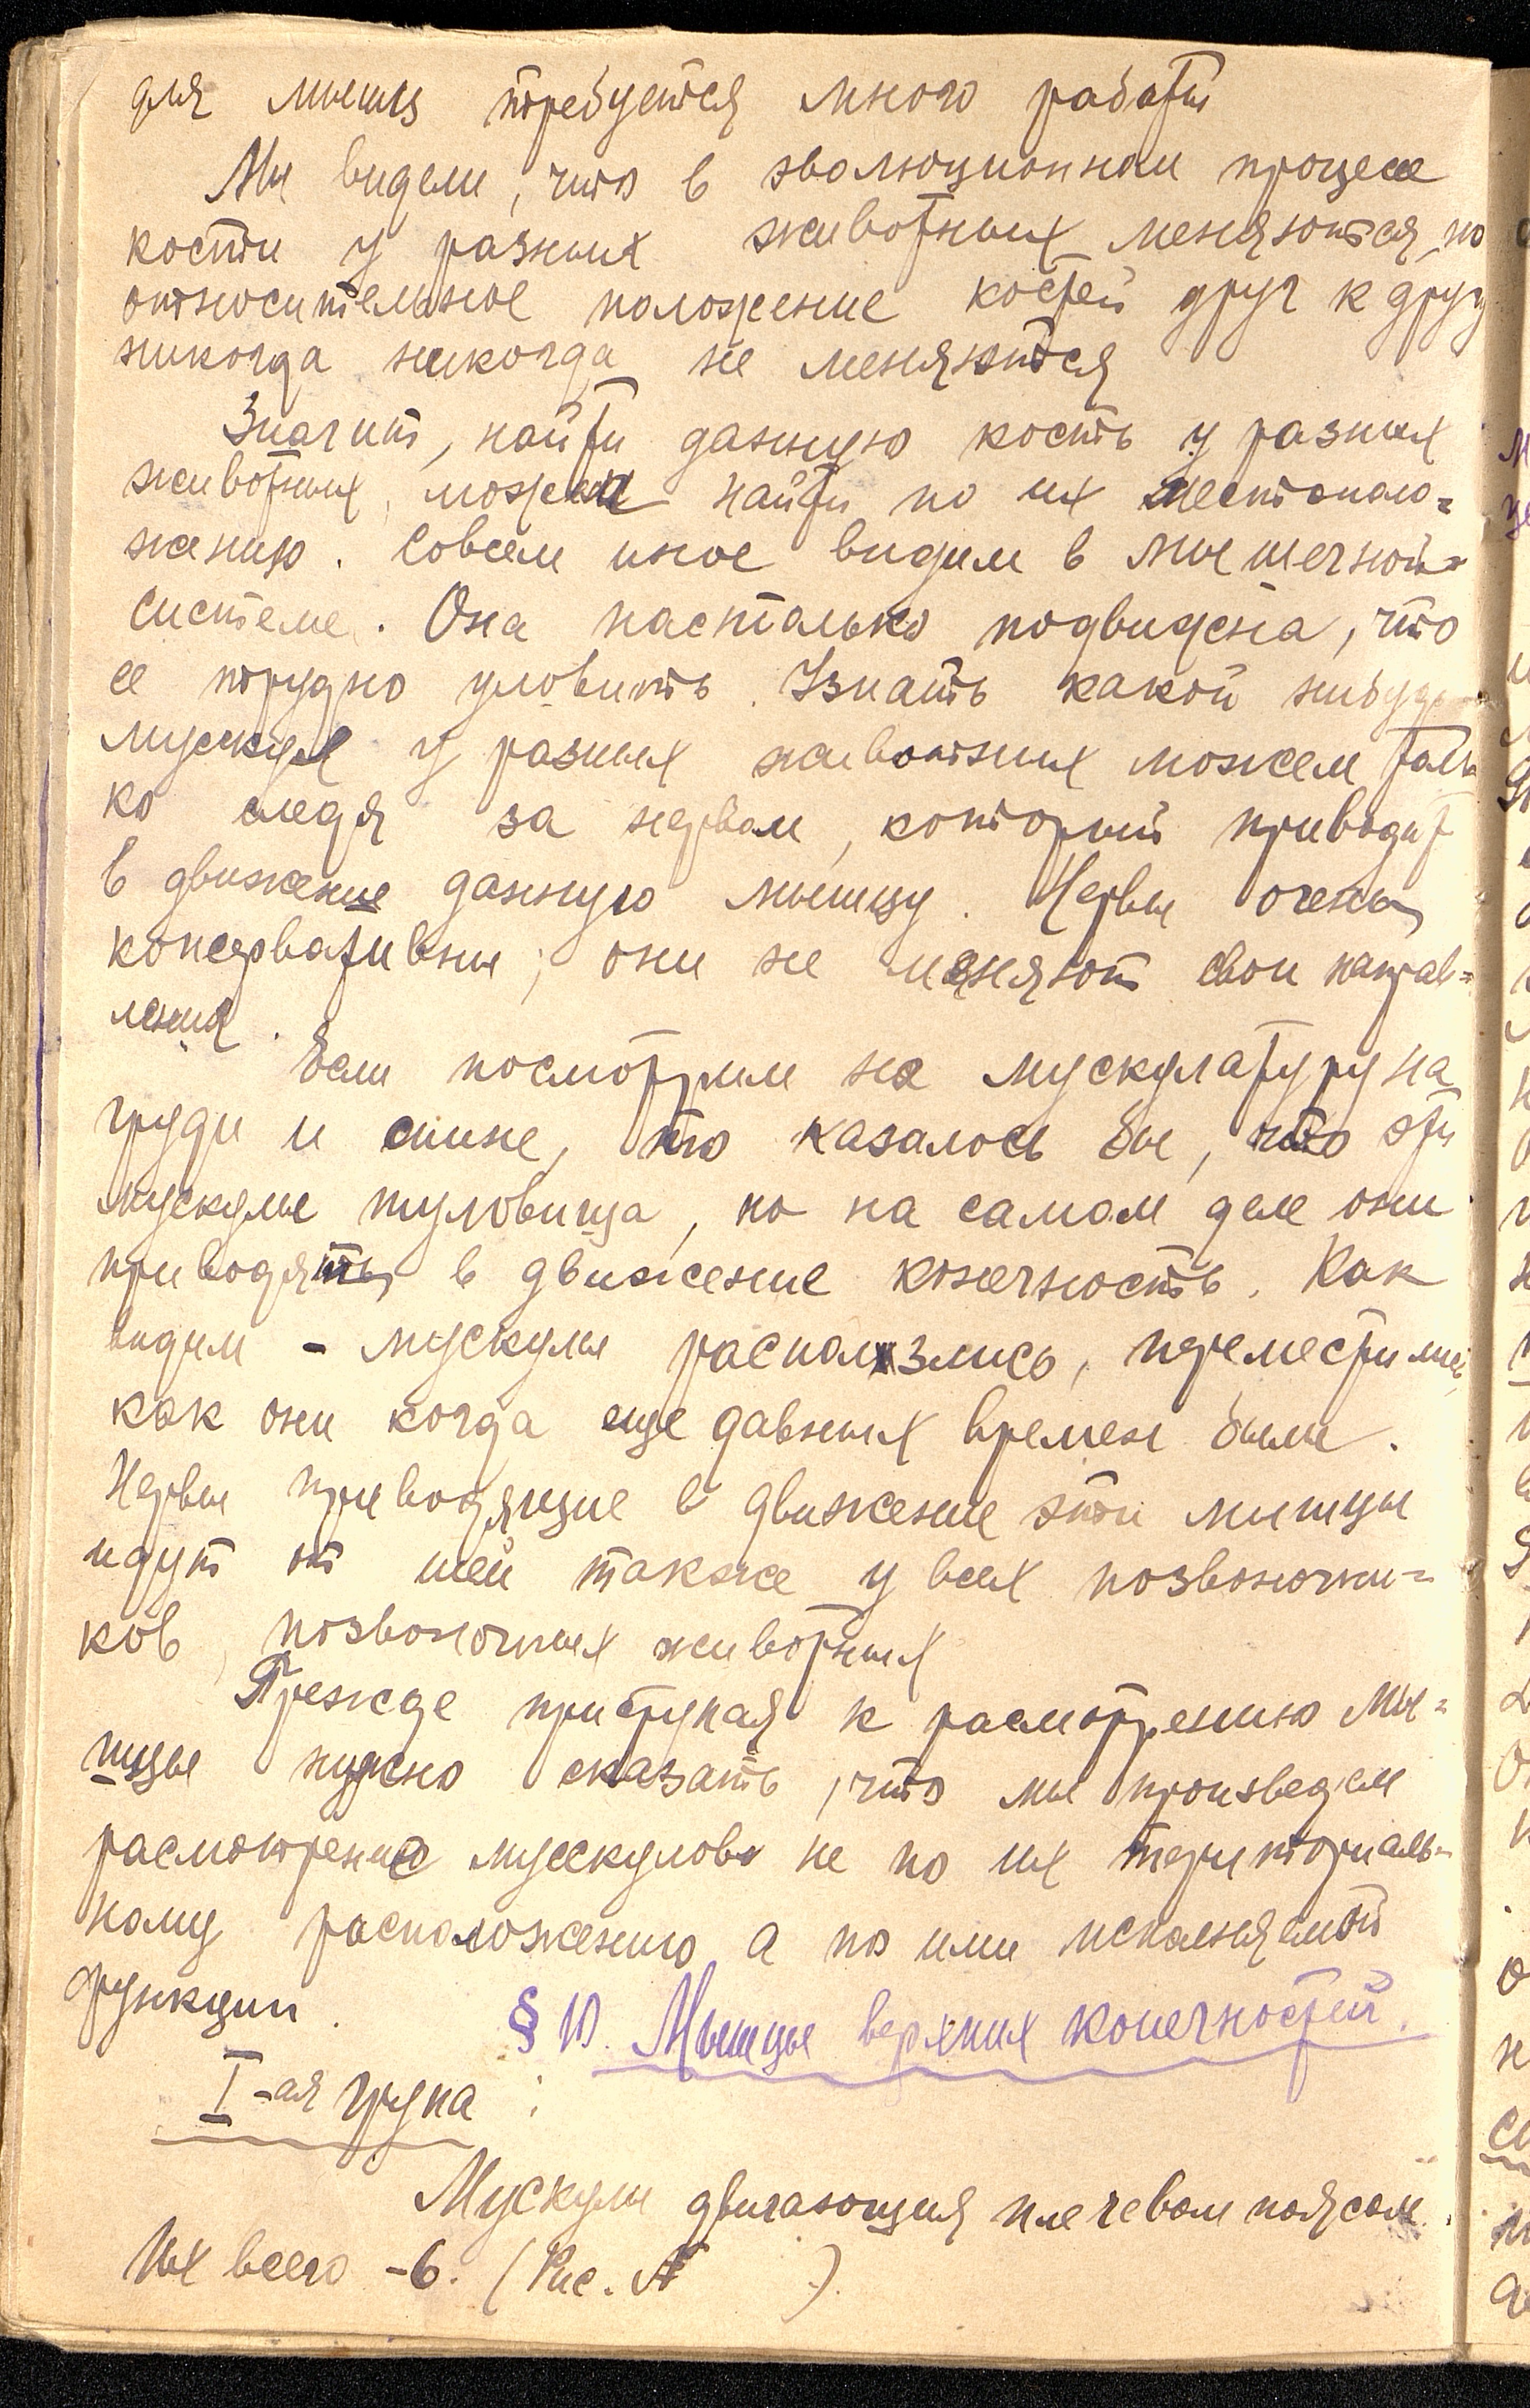 для мышц требуется много работы
Мы видели, что в эволюционном процессе
кости у разных животных меняются, но
относительное положение костей друг к друг
никогда никогда не меняются
Значит, найти данную кость у разных
животных, можем найти по их местополо=
жению. Совсем иное видим в мышечной
системе. Она настолько подвижна, что
ее трудно уловить. Узнать какой нибудь
мускул у разных животных можем толь
ко следя за нервом, который приводит
в движение данную мышцу. Нервы очень
консервативны; они не меняют свои направ=
ления.
Если посмотрим на мускулатуру на
груди и спине, то казалось бы, что эти
мускулы туловища, но на самом деле они
приводять в движение конечность. Как
видим - мускулы расползлись, переместились,
как они когда еще давных времен были.
Нервы приводящие в движение эти мышцы
идут от шеи также у всех позвоночни=
ков, позвоночных животных
Прежде приступая к расмотрению мы=
шцы нужно сказать, что мы произведем
расмотрение мускулов не по их териториаль=
ному расположению а по ими исполняемой
функции.
§ 10. Мышцы верхних конечностей.
I-ая група :
Мускулы двигающия плечевом поясом.
Их всего -6. (Рис. №          ).